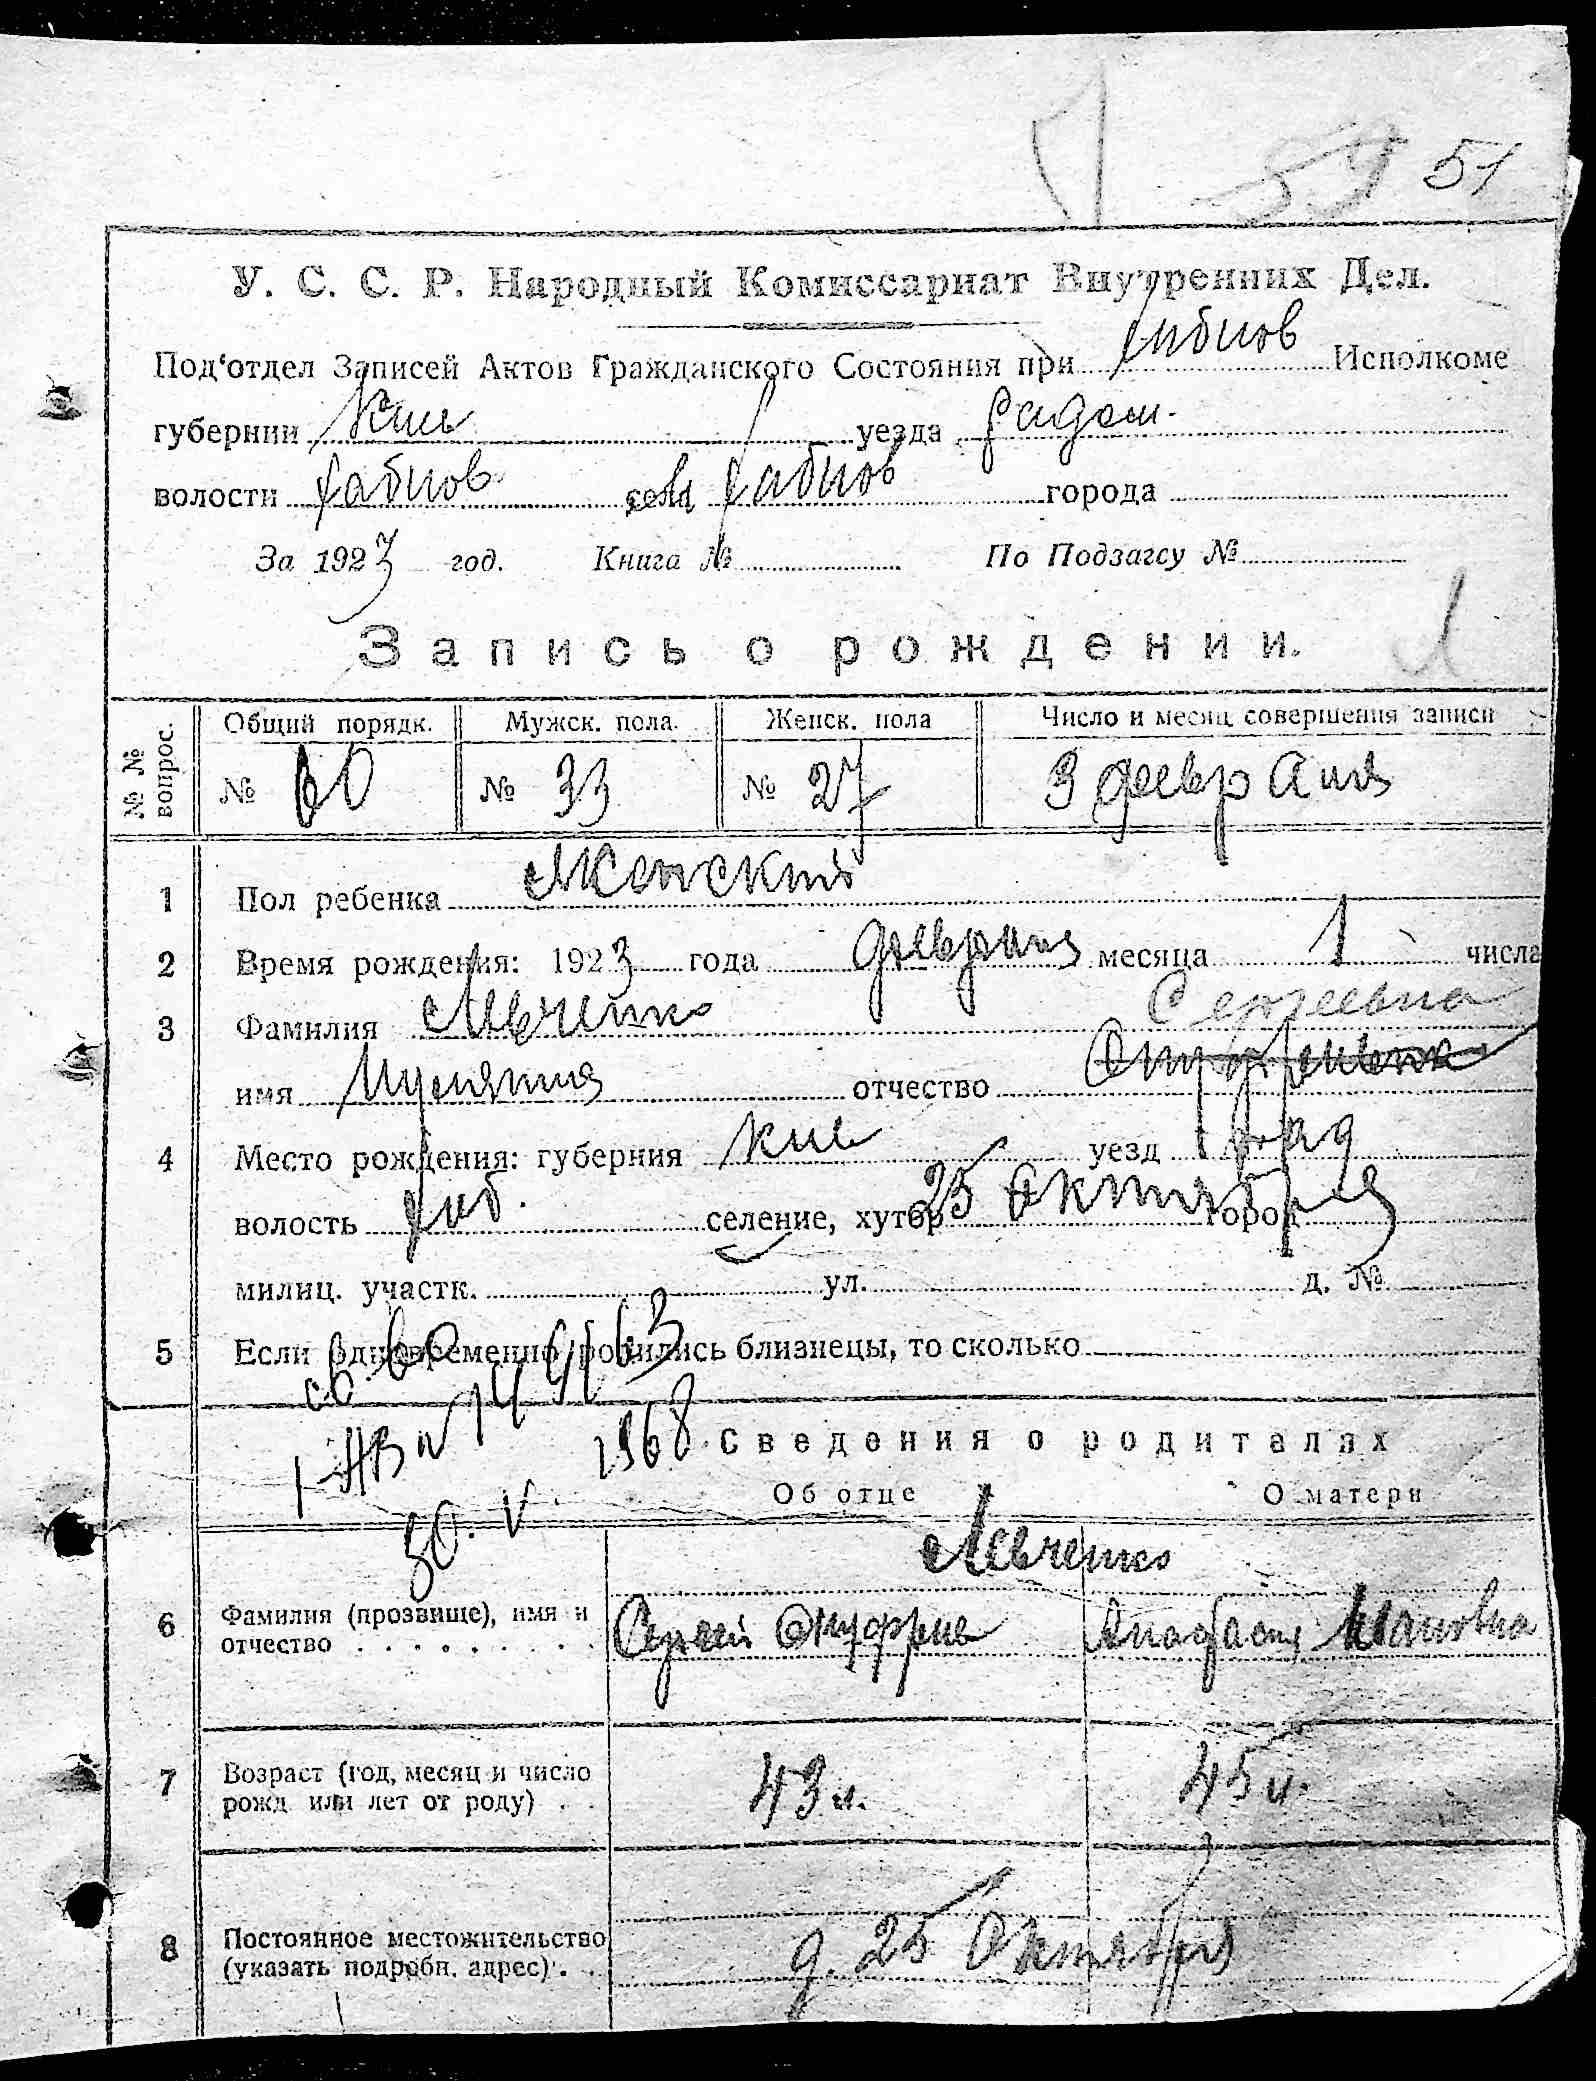 54 51
У. С. С. Р. Народный Комиссариат Внутренних Дел.
Под'отдел Записей Актов Гражданского Состояния при Хабнов Исполкоме
губернии Киев уезда Радом.
волости Хабнов села Хабнов города
За 1923 год. Книга № По Подзагсу №
Запись о рождении.
№ № вопрос. Общий порядк. Мужск. пола. Женск. пола Число и месяц совершения записи
№ 60 № 33 № 27 3 февраля
1 Пол ребенка Женский
2 Время рождения: 1923 года февраля месяца 1 числа
3 Фамилия Левченко
Сергеевна
имя отчество
4 Место рождения: губерния Киев уезд Рад
волость Хаб. селение, хутор 25 Октября город
милиц. участк. ул. д. №
5 Если одновременно родились близнецы, то сколько
1968
Сведения о родителях
30. V.
Об отце О матери
Левченко
6 Фамилия (прозвище), имя и
отчество Сергей Онуфриев Анастасия Ивановна
7 Возраст (год, месяц и число
рожд или лет от роду) 43 л. 45 л.
8 Постоянное местожительство
(указать подробн. адрес) д. 25 Октября